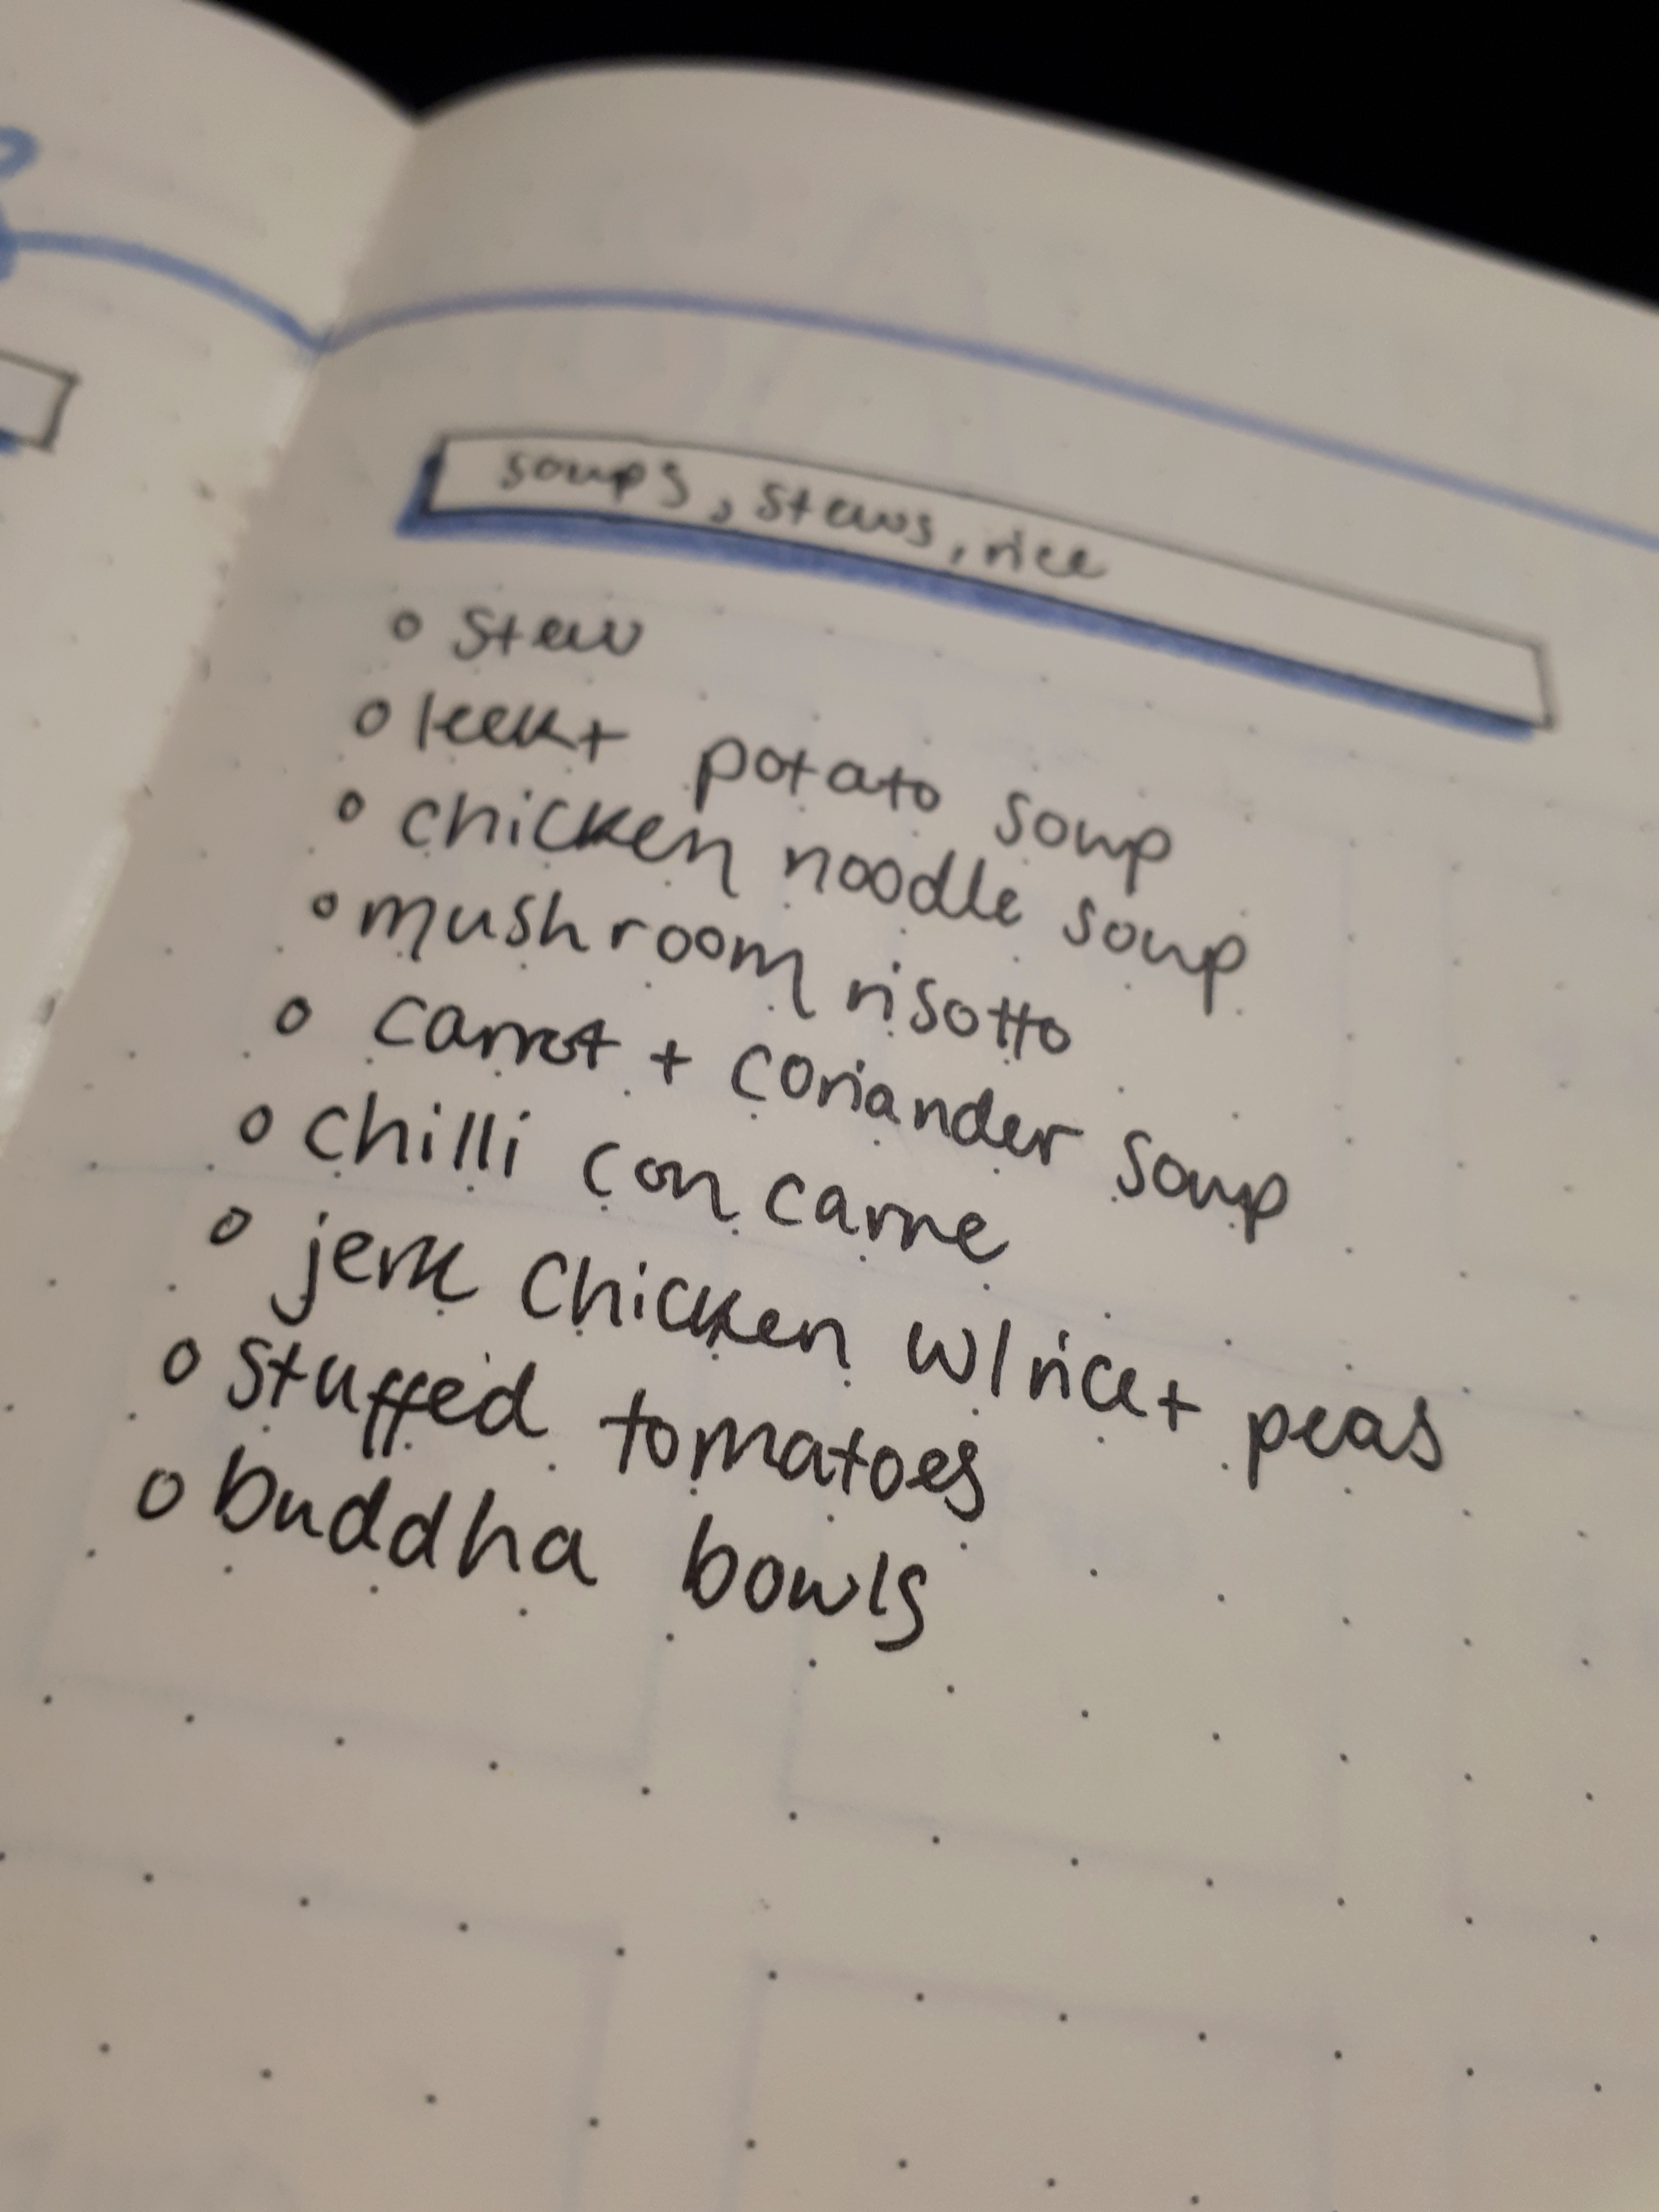 soups, stews, rice
o stew
o leek + potato soup
o chicken noodle soup
o mushroom risotto
o carrot + coriander soup
o chilli con carne
o jerk chicken w/ rice + peas
o stuffed tomatoes
o buddha bowls